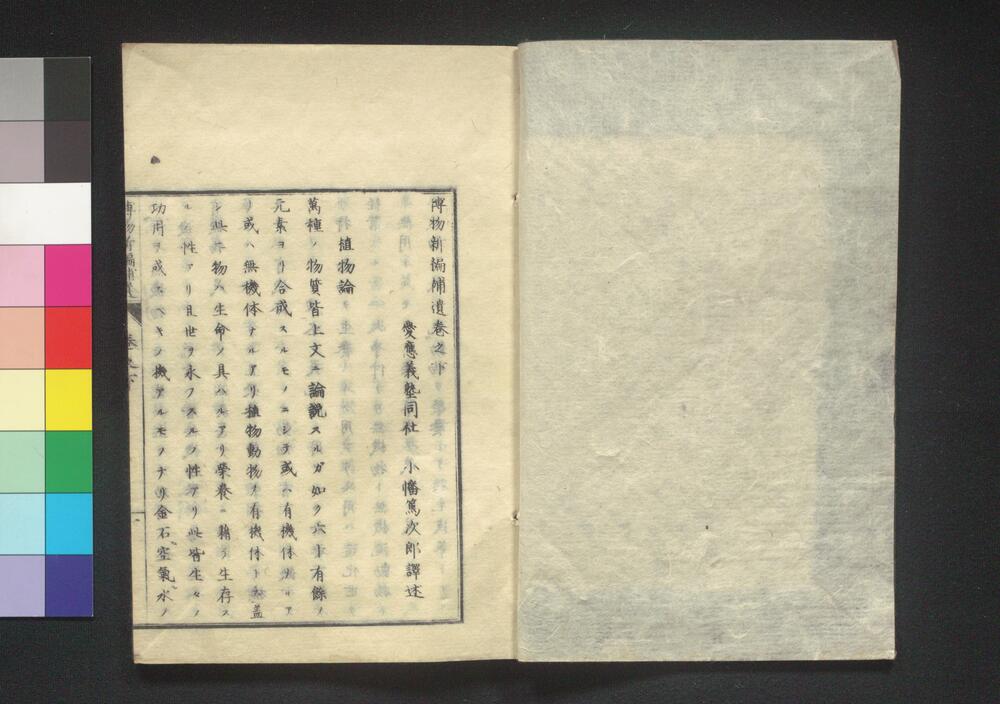 博物新編補遺卷之下
慶應義塾同社 小幡篤次郎譯述
植物論
萬種ノ物質皆上文ニ論說スルガ如ク六十有餘ノ
元素ヨリ合成スルモノニシテ或ハ有機体ナルア
リ或ハ無機体ナルアリ植物動物ヲ有機体ト云蓋
シ此二物ハ生命ノ具ハルアリ榮養ニ藉テ生存ス
ル性アリ且世ヲ永フスルノ性アリ此皆生々ノ
功用ヲ成スヘキノ機アルモノナリ金石空氣水ノ
博物新編補遺 卷之下 一